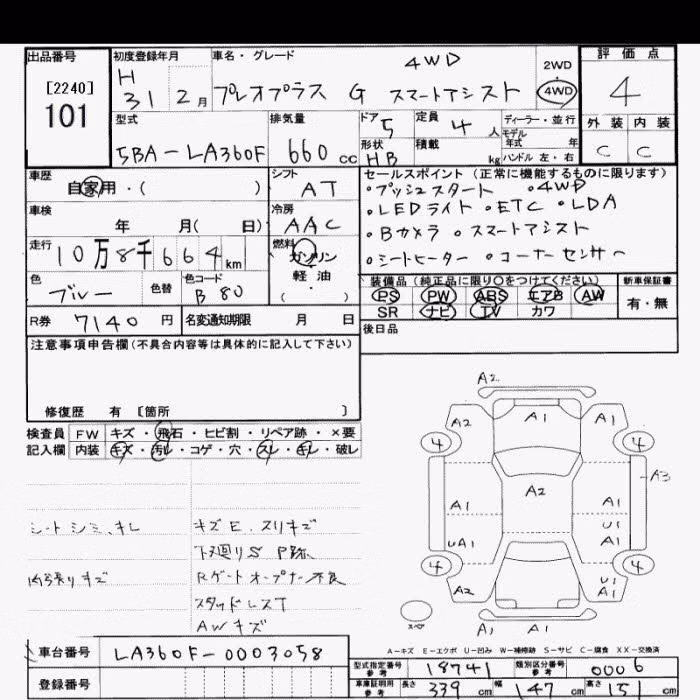 出品番号
[2240]
101
初度登録年月
H 31 2月
車名・グレード
4WD
プレオプラス G スマートアシスト
2WD
4WD
評価点
4
外装 内装
C C
型式
5BA-LA360F
排気量
660 cc
ドア 5
形状 HB
定員 4 人
積載 kg
ディーラー・並行
モデル
年式 年
ハンドル 左・右
車歴
自家用・( )
シフト
AT
車検
年 月( 日)
冷房
AAC
走行
10万8千664km
燃料
ガソリン
軽・油
( )
色
ブルー
色替
色コード
B80
R券 7140 円
名変通知期限 月 日
セールスポイント(正常に機能するものに限ります)
・プッシュスタート ・4WD
・LEDライト ・ETC ・LDA
・Bカメラ ・スマートアシスト
・シートヒーター ・コーナーセンサー
装備品(純正品に限り○をつけてください)
PS PW ABS エアB AW
SR ナビ TV カワ
新車保証書
有・無
後日品
注意事項申告欄(不具合内容等は具体的に記入して下さい)
修復歴 有 [箇所 ]
検査員
記入欄
FW キズ・飛石・ヒビ割・リペア跡・×要
内装 キズ・汚レ・コゲ・穴・スレ・キレ・破レ
シートシミ、キレ
内張りキズ
キズE、スリキズ
下廻りS P跡
Rゲートオープナー不良
スタッドレスT
AWキズ
A2
A2 A1 A1
4 4
A3
A1 A2 A1
U1
UA1 A1
4 4
A2 U1
A1
A1 A1
スペア
A-キズ E-エクボ U-凹み W-補修跡 S-サビ C-腐食 XX-交換済
車台番号 LA360F-0003058
登録番号
型式指定番号
参考
18741
類別区分番号
参考
0006
車庫証明用
参考
長さ 339 cm 幅 147 cm 高さ 151 cm